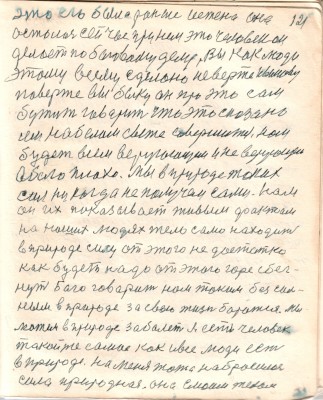 это есть была раньше истена она 121
осталося сейчас при нем это человек он
делает по бывалому делу. Вы как люди
этому всему сделано не верте а
поверте вы быку он про это сам
будит говарить что это сказано
им на белом свете совершити, нам
будет всем верующим и не верующим
от всего плохо. Мы в природе таких
сил никогда не получаем сами. Нам
он их показывает живым фактам
на наших людях тело само находит
в природе силы от этого не достатка
как будет надо от этого горе сбег-
нут Баго говарит нам таким без сил-
ным в природе за свою жизнь боротся. Мы
можим в природе заболет Я есть человек
такой же самые как и все люди есть
в природе. На меня тоже набросилася
сила природная. она своим телом